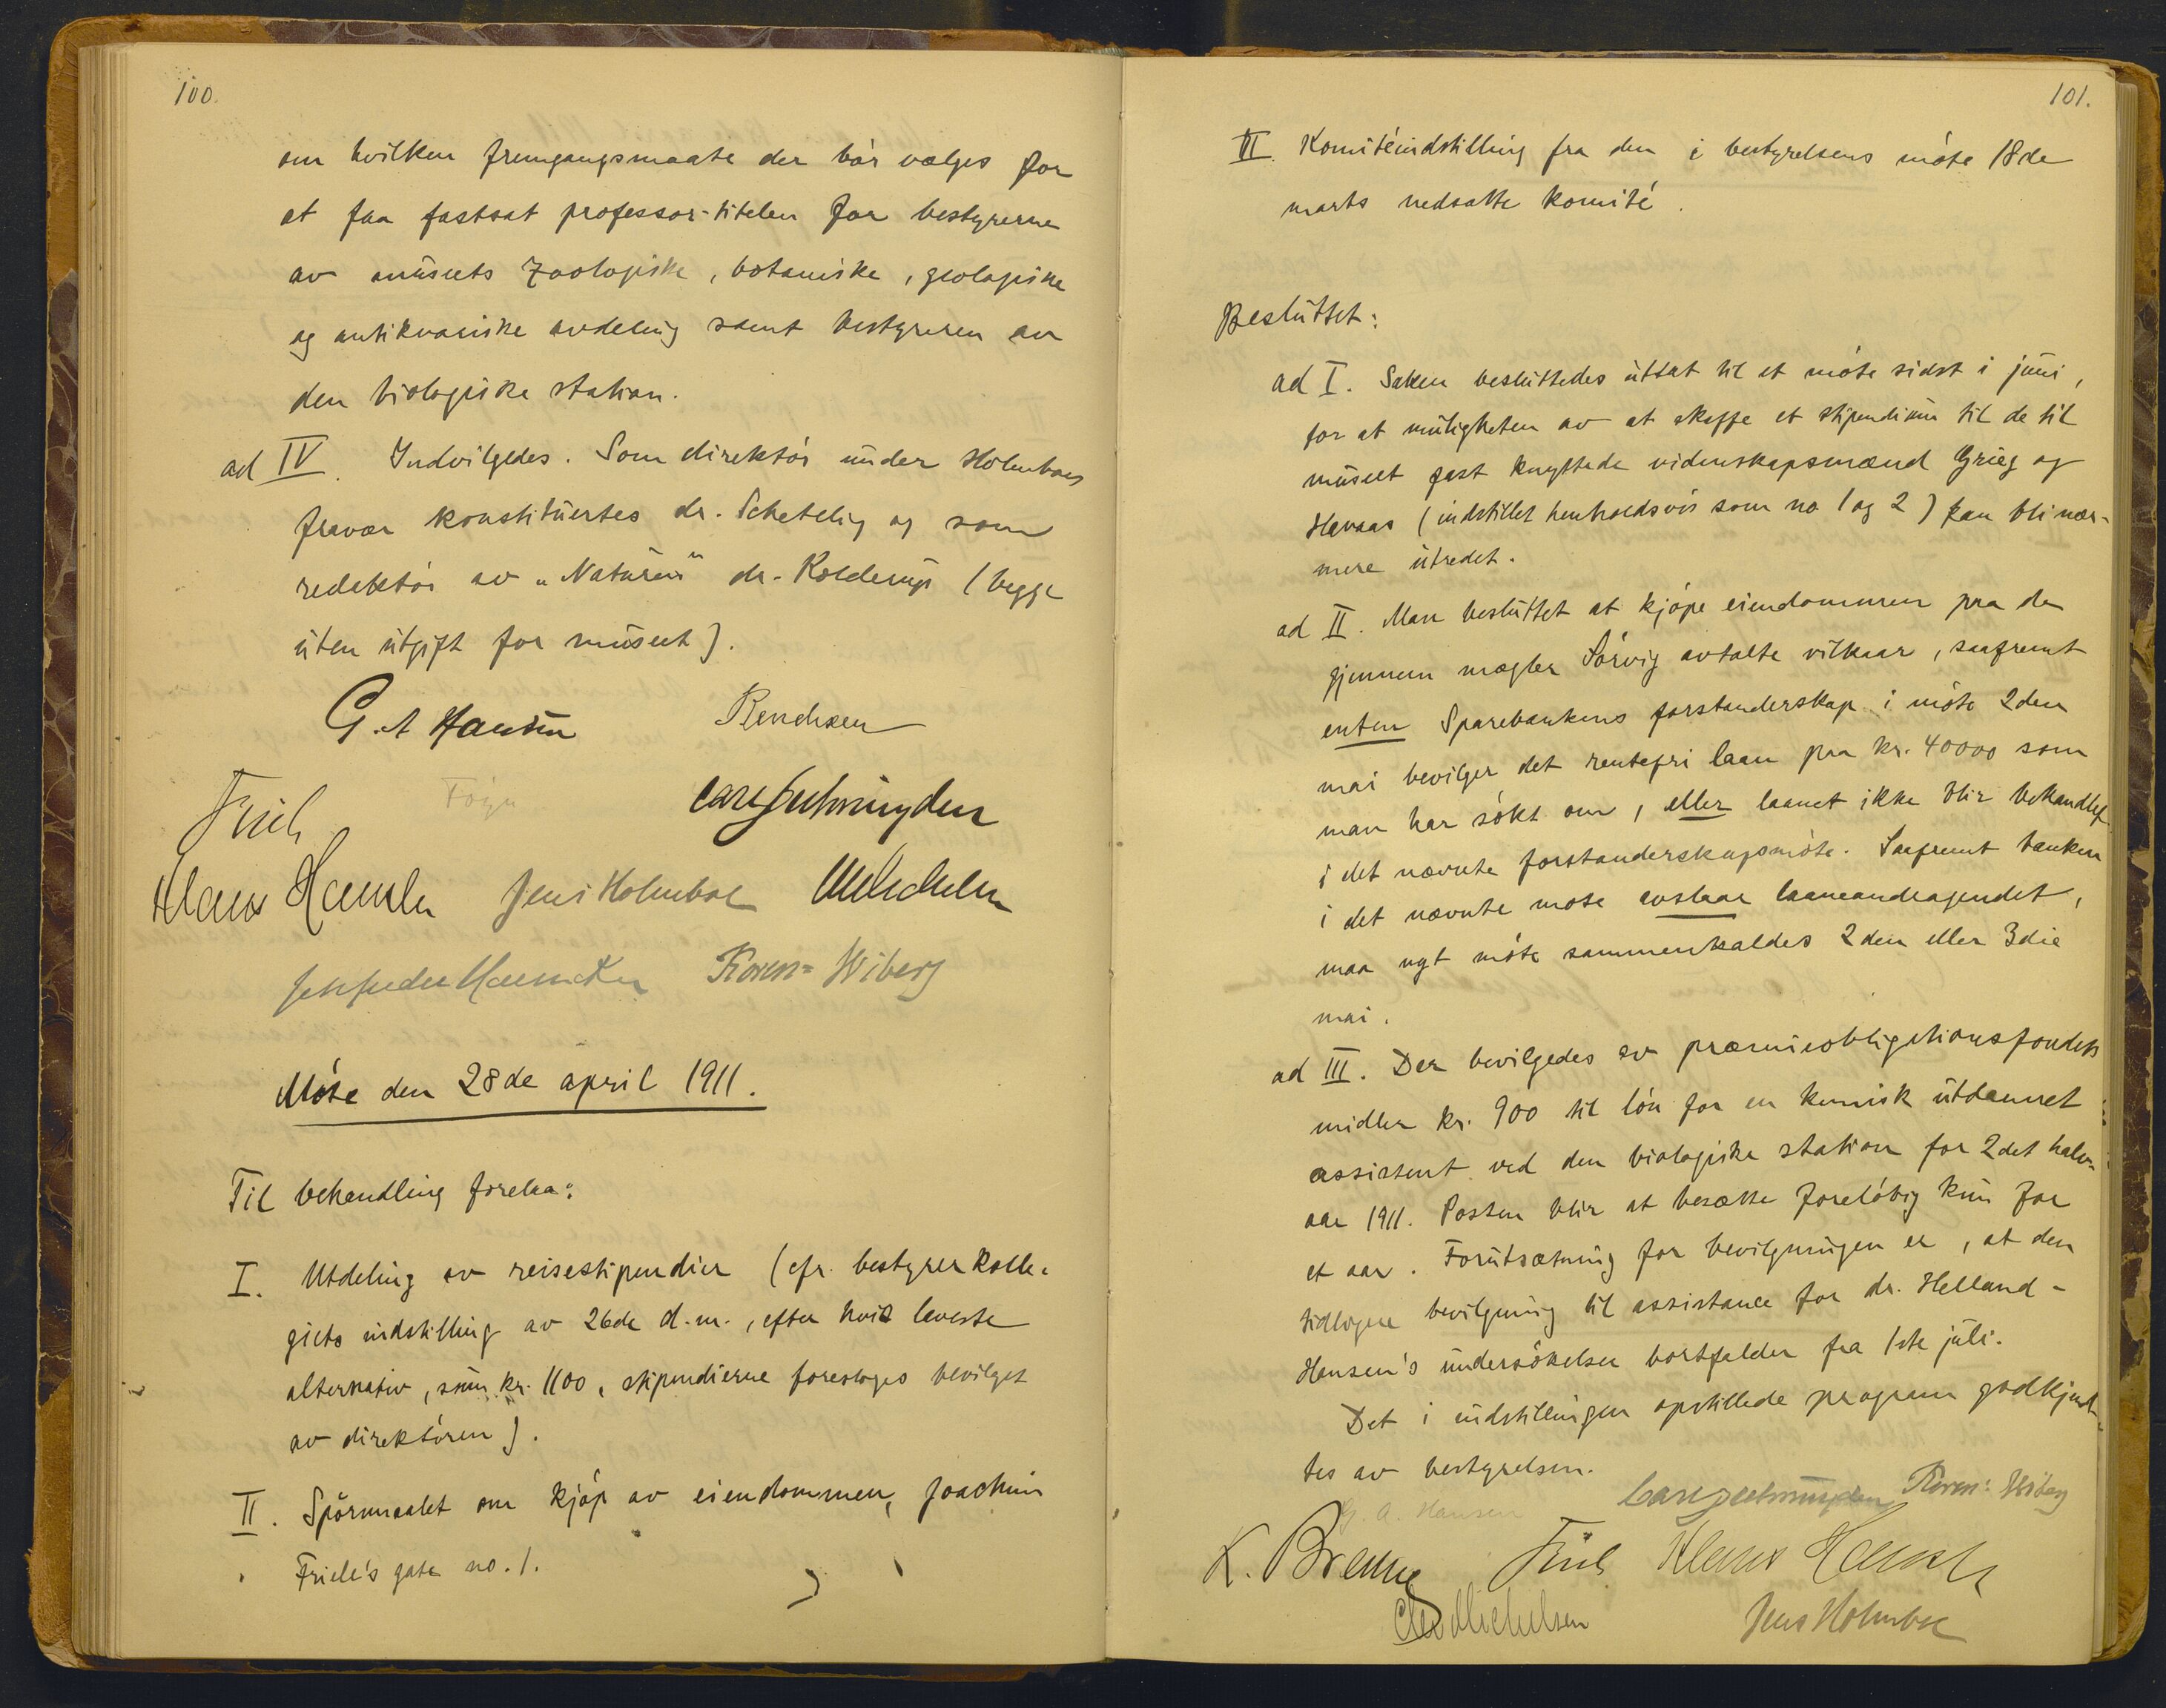 100.
om hvilken fremgangsmaate der bör vælges for
at faa fastsat professor-titelen for bestyrerne
av museets zoologiske, botaniske, geologiske
og antikvariske avdeling samt bestyreren av
den biologiske station.
ad IV. Indvilgedes. Som direktör under Holmboes
fravær konstituertes dr. Schetelig og som
redaktör av „Naturen" dr. Kolderup (begge
uten utgift for museet).
G. A Hansen Bendixen
Friele
Klaus Hanssen Jens Holmboe Michelsen
Koren=Wiberg
Möte den 28de april 1911.
Til behandling forelaa:
I. Utdeling av reisestipendier (cfr. bestyrerkolle-
giets indstilling av 26de d.m., efter hvis laveste
alternativ, sum kr. 1100, stipendierne foreslages bevilget
av direktören).
II. Spörsmaalet om kjöp av eiendommen, Joachim
Friele's gate no. 1.
101.
III. Komitéindstilling fra den i bestyrelsens möte 18de
marts nedsatte komité.
Besluttet:
ad I. Saken besluttedes utsat til et möte sidst i juni,
for at muligheten av at skaffe et stipendium til de til
museet fast knyttede videnskapsmænd Grieg og
Havaas (indstillet henholdsvis som no 1 og 2) kan bli nær-
mere utredet.
ad II. Man besluttet at kjöpe eiendommen paa de
gjennem mægler Sörvig avtalte vilkaar, saafremt
enten Sparebankens forstanderskap i möte 2den
mai bevilger det rentefri laan paa kr. 40000 som
man har sökt om, eller laanet ikke blir behandlet
i det nævnte forstanderskapsmöte. Saafremt banken
i det nævnte möte avslaar laaneandragendet,
maa nyt möte sammenkaldes 2den eller 3die
mai.
ad III. Der bevilgedes av præmieobligationsfondets
midler kr. 900 til lön for en kemisk utdannet
assistent ved den biologiske station for 2det halv-
aar 1911. Posten blir at besætte forelöbig kun for
et aar. Forutsætning for bevilgningen er, at den
tidligere bevilgning til assistance for dr. Helland-
Hansen's undersökelser bortfalder fra 1ste juli.
Det i indstillingen opstillede program godkjend-
tes av bestyrelsen.
G. A. Hansen Koren=Wiberg
K. Brekke Friele Klaus Hanssen
Chr Michelsen Jens Holmboe